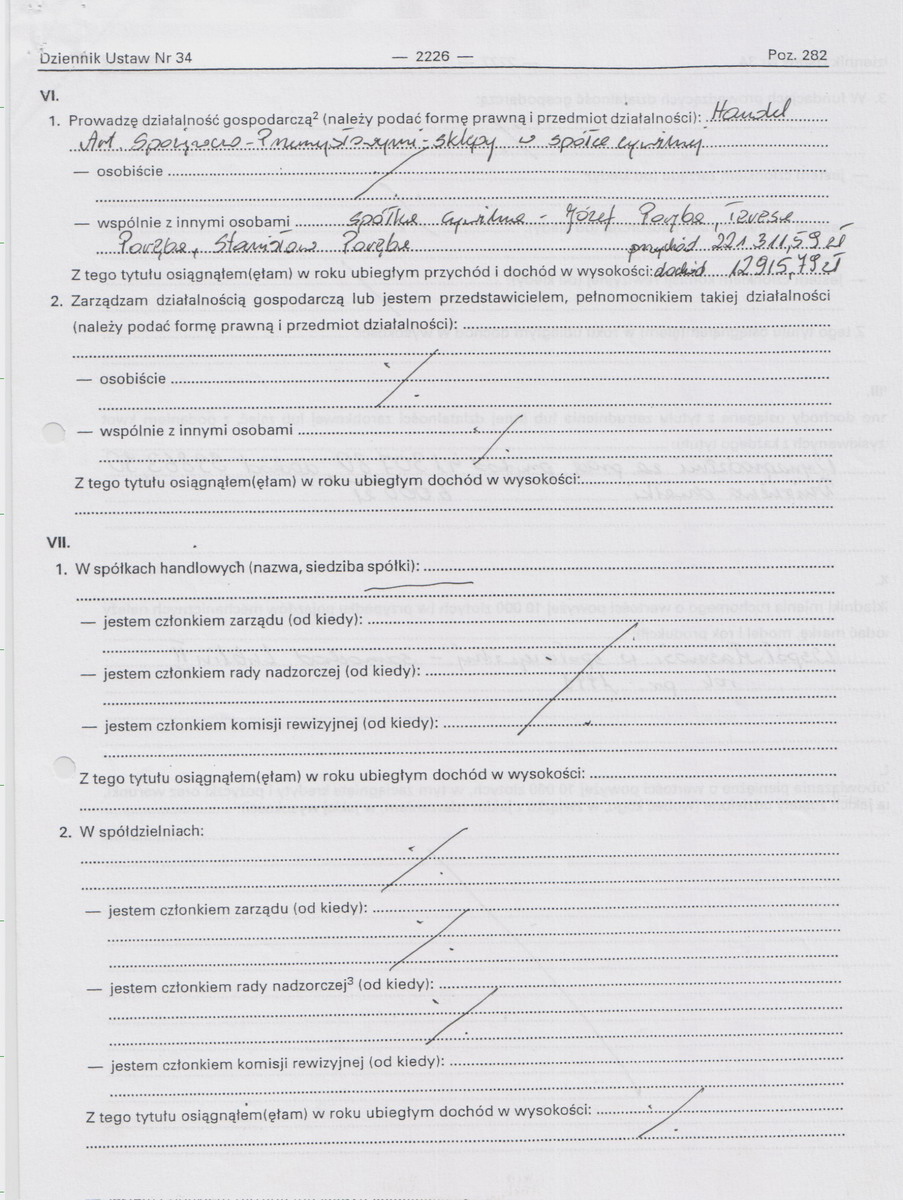 Dziennik Ustaw Nr 34 — 2226 — Poz. 282
VI.
1. Prowadzę działalność gospodarczą2 (należy podać formę prawną i przedmiot działalności): Handel
Art. Spożywczo-Przemysłowymi - sklepy w spółce cywilnej
— osobiście
— wspólnie z innymi osobami spółka cywilna - Józef Poręba, Teresa
Poręba, Stanisław Poręba przychód 221 311,59 zł
Z tego tytułu osiągnąłem(ęłam) w roku ubiegłym przychód i dochód w wysokości: dochód 12915,79 zł
2. Zarządzam działalnością gospodarczą lub jestem przedstawicielem, pełnomocnikiem takiej działalności
(należy podać formę prawną i przedmiot działalności):
— osobiście
— wspólnie z innymi osobami
Z tego tytułu osiągnąłem(ęłam) w roku ubiegłym dochód w wysokości:
VII.
1. W spółkach handlowych (nazwa, siedziba spółki):
— jestem członkiem zarządu (od kiedy):
— jestem członkiem rady nadzorczej (od kiedy):
— jestem członkiem komisji rewizyjnej (od kiedy):
Z tego tytułu osiągnąłem(ęłam) w roku ubiegłym dochód w wysokości:
2. W spółdzielniach:
— jestem członkiem zarządu (od kiedy):
— jestem członkiem rady nadzorczej3 (od kiedy):
— jestem członkiem komisji rewizyjnej (od kiedy):
Z tego tytułu osiągnąłem(ęłam) w roku ubiegłym dochód w wysokości: